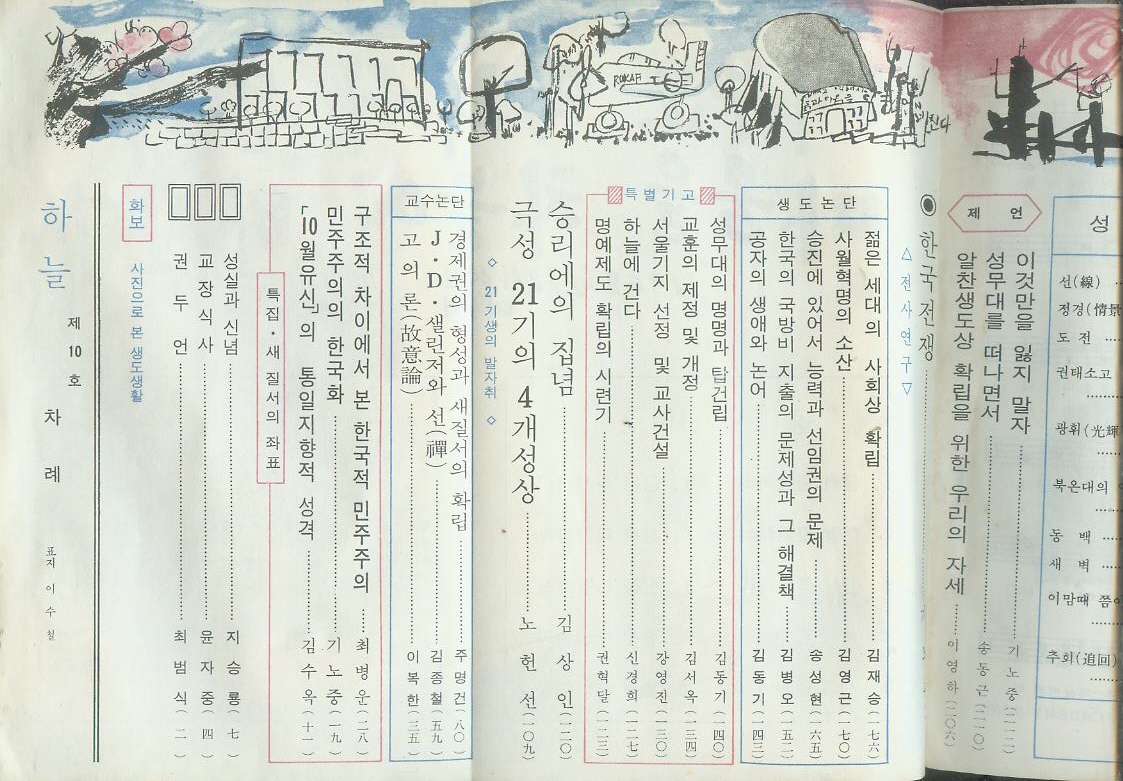 ROKAF
하늘
제 10 호
차 례
표지 이 수 철
화보
사진으로 본 생도생활
권 두 언 최 범 식 (二)
교 장 식 사 윤 자 중 (四)
성실과 신념 지 승 룡 (七)
특집 · 새 질서의 좌표
「10월유신」의 통일지향적 성격 김 수 옥 (十一)
민주주의의 한국화 기 노 중 (一九)
구조적 차이에서 본 한국적 민주주의 최 병 운 (二八)
교수논단
고 의 론 (故意論) 이 복 한 (三五)
J · D · 샐린저와 선(禪) 김 종 철 (五九)
경제권의 형성과 새질서의 확립 주 명 건 (八〇)
◇ 21 기생의 발자취 ◇
극성 21기의 4개성상 노 헌 선 (一〇九)
승리에의 집념 김 상 인 (一二〇)
특별기고
명예제도 확립의 시련기 권 혁 달 (一二三)
하늘에 건다 신 경 희 (一二七)
서울기지 선정 및 교사건설 강 영 진 (一三〇)
교훈의 제정 및 개정 김 서 옥 (一三四)
성무대의 명명과 탑건립 김 동 기 (一四〇)
생도논단
공자의 생애와 논어 김 동 기 (一四三)
한국의 국방비 지출의 문제성과 그 해결책 김 병 오 (一五二)
승진에 있어서 능력과 선임권의 문제 송 성 현 (一六五)
사월혁명의 소산 김 영 근 (一七〇)
젊은 세대의 사회상 확립 김 재 승 (一七六)
△ 전사연구 ▽
◉ 한국전쟁
제 언
알찬생도상 확립을 위한 우리의 자세 이 영 하 (二〇六)
성무대를 떠나면서 송 동 근 (二一〇)
이것만을 잃지 말자 기 노 중 (二一二)
성
선(線)
정경(情景
도 전
권태소고
광휘(光輝
북온대의
동 백
새 벽
이맘때 쯤
추회(追回)